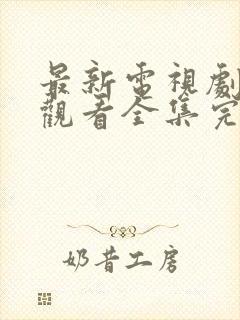 最新電視劇
觀看全集完
奶昔工房